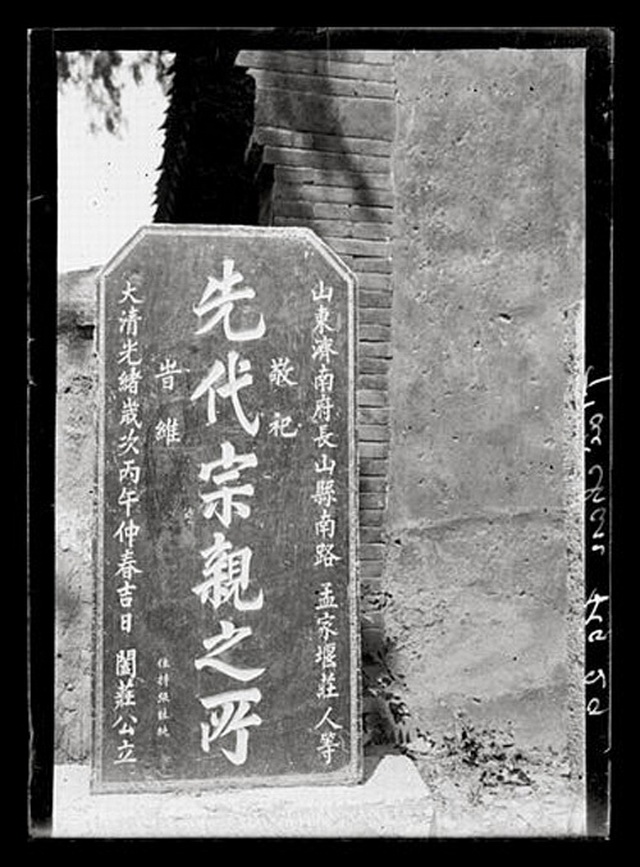 山東濟南府長山縣南路 孟家堰莊 人等
敬祀
先代宗親之所
旹維
住持張
大清光緒歲次丙午仲春吉日 闔莊公立